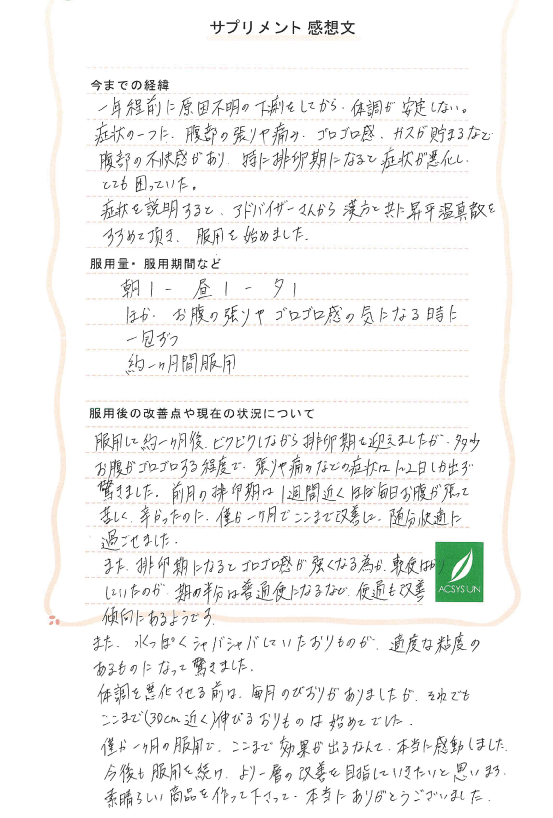 サプリメント 感想文
今までの経緯
一年程前に原因不明の下痢をしてから、体調が安定しない。
症状の一つに、腹部の張りや痛み、ゴロゴロ感、ガスが貯まるなど
腹部の不快感があり、特に排卵期になると症状が悪化し、
とても困っていた。
症状を説明すると、アドバイザーさんから漢方と共に昇平温真散を
すすめて頂き、服用を始めました。
服用量・服用期間など
朝1 - 昼1 - 夕1
ほか、お腹の張りやゴロゴロ感の気になる時に
一包ずつ
約一ヶ月間服用
服用後の改善点や現在の状況について
服用して約一ヶ月後、ビクビクしながら排卵期を迎えましたが、多少
お腹がゴロゴロする程度で、張りや痛みなどの症状は1〜2日しか出ず
驚きました。前月の排卵期は1週間近くほぼ毎日お腹が張って
苦しく、辛かったのに、僅か一ヶ月でここまで改善し、随分快適に
過ごせました。
また、排卵期になるとゴロゴロ感が強くなる為か、軟便ばかり
していたのが、期の半分は普通便になるなど、便通も改善
傾向にあるようです。
ACSYS UN
また、水っぽくシャバシャバしていたおりものが、適度な粘度の
あるものになって驚きました。
体調を悪化させる前は、毎月のびおりがありましたが、それでも
ここまで(30cm近く)伸びるおりものは始めてでした。
僅か一ヶ月の服用で、ここまで効果が出るなんて、本当に感動しました。
今後も服用を続け、より一層の改善を目指していきたいと思います。
素晴らしい商品を作って下さって、本当にありがとうございました。